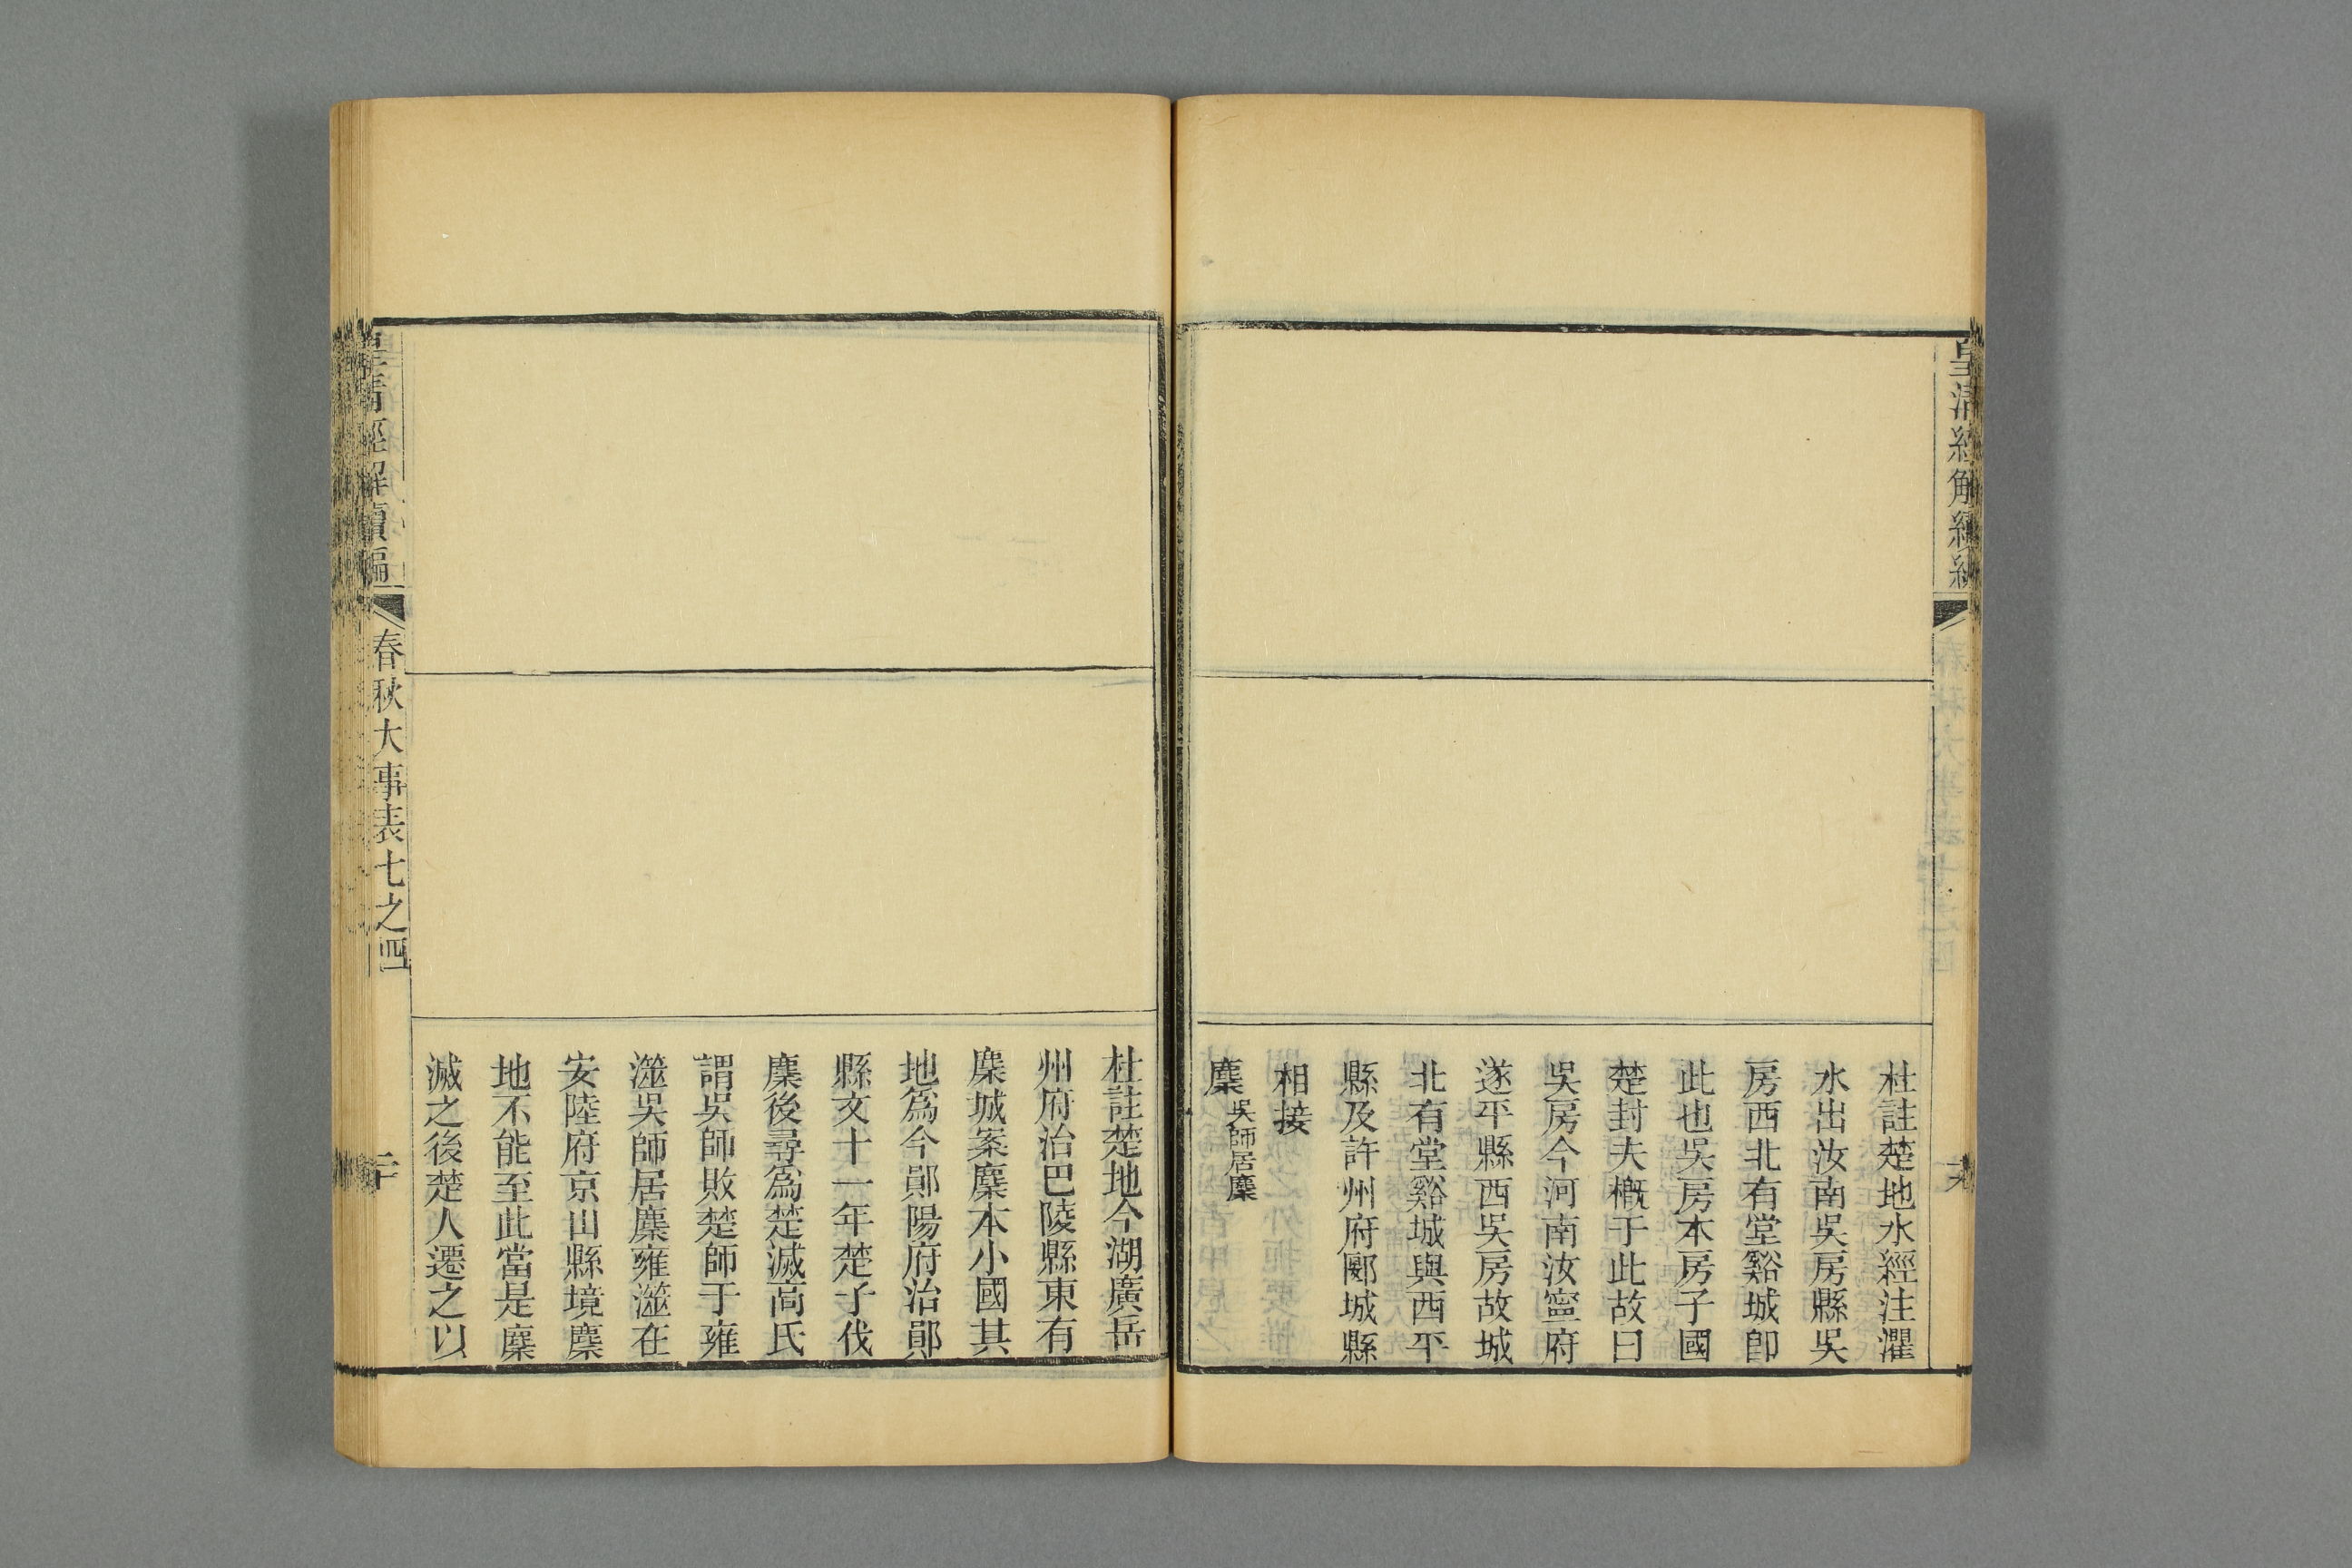 皇清經解續編
杜註楚地水經注灈
水出汝南吳房縣吳
房西北有堂谿城卽
此也吳房本房子國
楚封夫槪于此故曰
吳房今河南汝寧府
遂平縣西吳房故城
北有堂谿城與西平
縣及許州府郾城縣
相接
麇吳師居麇
杜註楚地今湖廣岳
州府治巴陵縣東有
麇城案麇本小國其
地爲今鄖陽府治鄖
縣文十一年楚子伐
麇後尋爲楚滅高氏
謂吳師敗楚師于雍
澨吳師居麇雍澨在
安陸府京山縣境麇
地不能至此當是麇
滅之後楚人遷之以
皇清經解續編
春秋大事表七之四